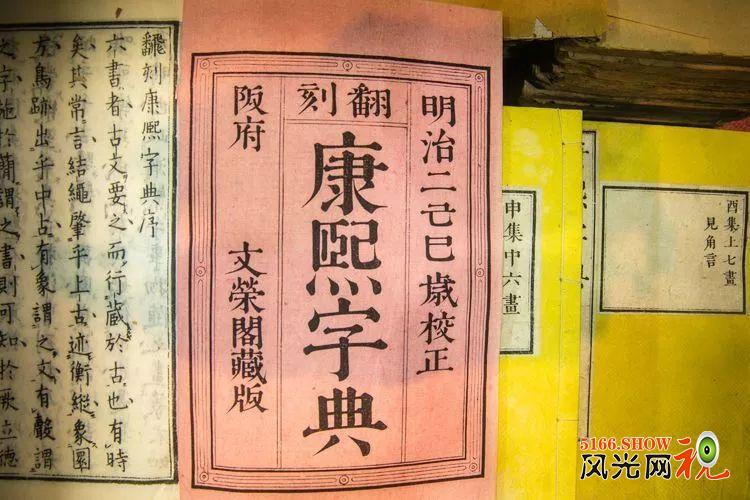 酉集上七畫
見角言
申集中六畫
明治二己巳歳校正
翻刻
康熙字典
阪府 文榮閣藏版
翻刻康熙字典序
六書者古文要之而行蔵於古也有時
矣其常言結繩肇乎上古迹衡縱象圜
方鳥跡出乎中古有象謂之文有聲謂
之字施於簡謂之書則可知於厥立徳
5166.SHOW
风光网视